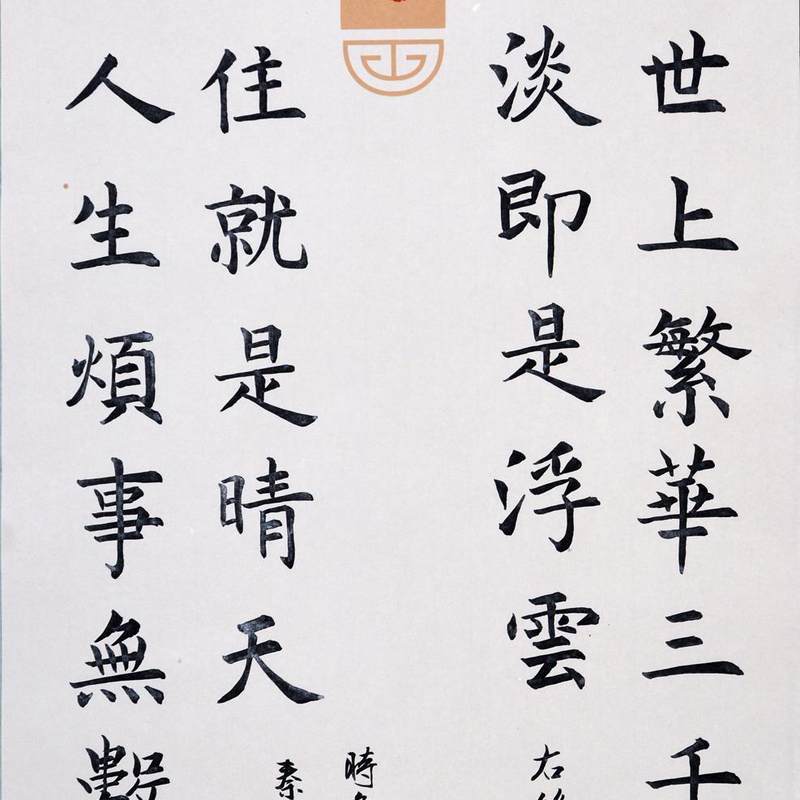 世上繁華三千
淡即是浮雲
右
人生煩事無
住就是晴天
時
秦